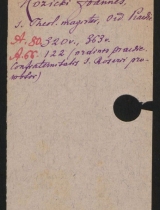 Rozicki Joannes,
S. Theol. magister, Ord. Praed.
A. 80. 520v., 363v.
A. 66. 122 (ordinis praedic.
confraternitatis S. Rosarii pro-
motor)